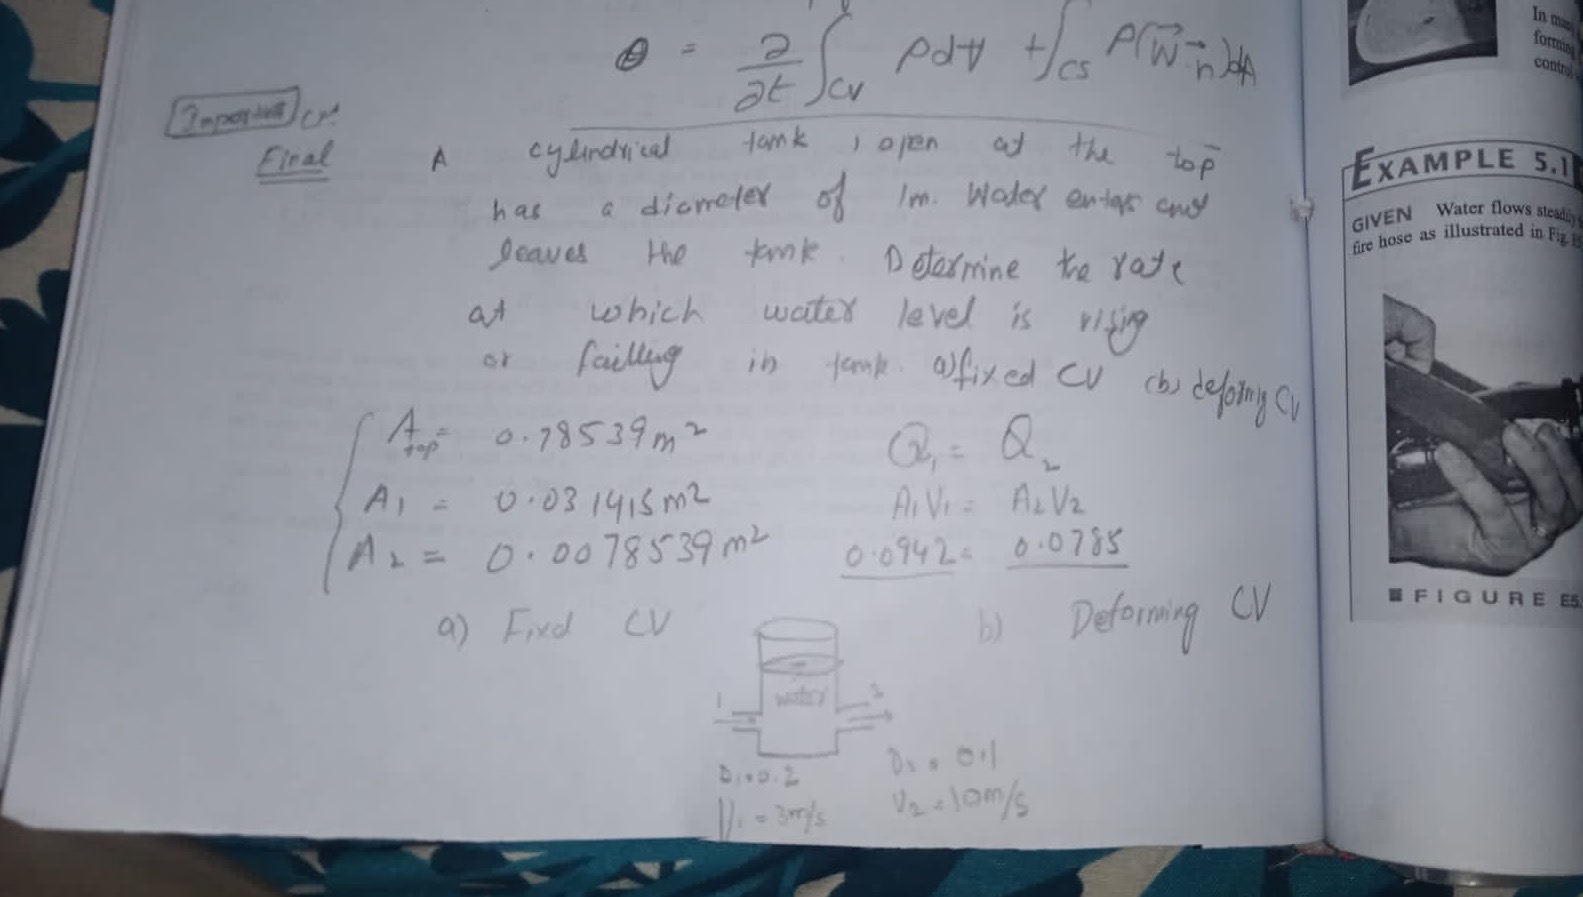 0 = ∂/∂t ∫CV ρdV + ∫CS ρ(W·n)dA
Important
Final
A cylindrical tank, open at the top
has a diameter of 1m. Water enters and
leaves the tank. Determine the rate
at which water level is rising
or failling in tank. a) fixed CV (b) deforming CV
Atop = 0.78539 m²
Q₁ = Q₂
A₁ = 0.031415 m²
A₁V₁ = A₂V₂
A₂ = 0.0078539 m²
0.0942 = 0.0785
a) Fixd CV
b) Deforming CV
water
1
2
D₁=0.2
V₁ = 3m/s
D₂ = 0.1
V₂ = 10m/s
In
forming
contro
EXAMPLE 5.1
GIVEN Water flows steadily
fire hose as illustrated in Fig. E5
FIGURE E5.